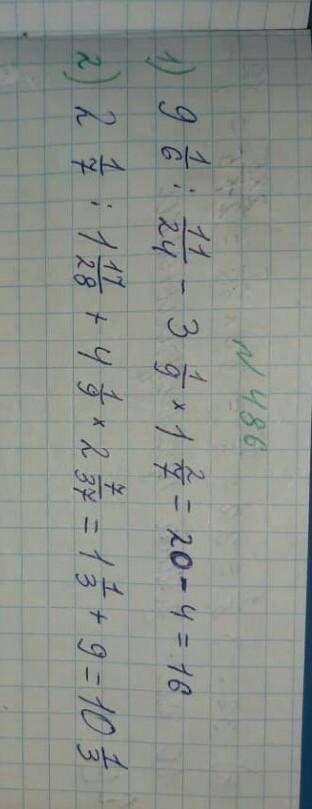 N 486
1) 9 1/6 : 11/24 - 3 1/9 × 1 2/7 = 20 - 4 = 16
2) 2 1/7 : 1 17/28 + 4 1/9 × 2 7/37 = 1 1/3 + 9 = 10 1/3